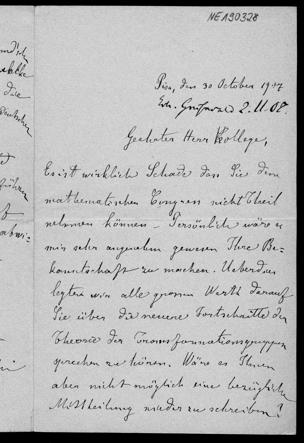 NEA90328
Pisa, den 30 October 1907
2.11.08.
Geehrter Herr Kollege,
Es ist wirklich Schade dass Sie dem
mathematischen Congress nicht Theil
nehmen können – Persönlich wäre es
mir sehr angenehm gewesen Ihre Be-
kanntschaft zu machen. Ueberdies
legten wir alle grossen Werth darauf
Sie über die neuere Fortschritte der
Theorie der Transformationsgruppen
sprechen zu hören. Wäre es Ihnen
aber nicht möglich eine bezügliche
Mittheilung nieder zu schreiben?